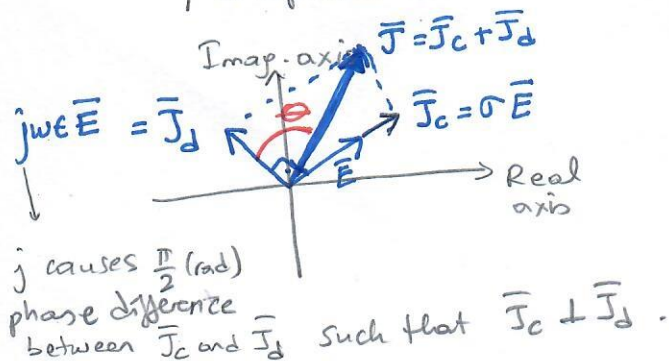 Imag. axis
J̄ = J̄c + J̄d
jωϵĒ = J̄d
θ
J̄c = σĒ
Ē
Real
axis
j causes π/2 (rad)
phase difference
between J̄c and J̄d such that J̄c ⊥ J̄d.